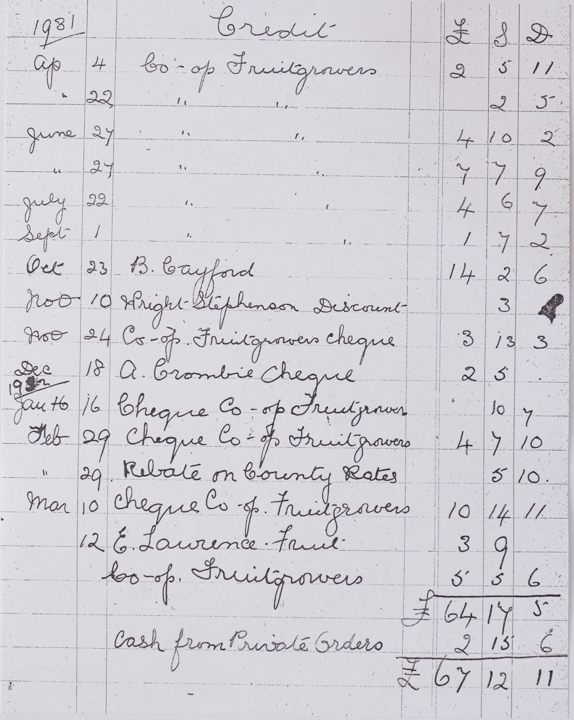 1981 Credit £ S D
Ap 4 Co-op Fruitgrowers 2 5 11
" 22 " " 2 5
June 27 " " 4 10 2
" 27 " 7 7 9
July 22 " " 4 6 7
Sept 1 " " 1 7 2
Oct 23 B. Cayford 14 2 6
Nov 10 Wright Stephenson Discount 3
Nov 24 Co-op. Fruitgrowers cheque 3 13 3
Dec 18 A. Crombie Cheque 2 5 .
Jan 16 Cheque Co-op Fruitgrower 10 7
Feb 29 Cheque Co-op Fruitgrowers 4 7 10
" 29. Rebate on County Rates 5 10.
Mar 10 Cheque Co-op. Fruitgrowers 10 14 11
12 E. Lawrence. Fruit 3 9
Co-op. Fruitgrowers 5 5 6
£ 64 17 5
Cash from Private Orders 2 15 6
£ 67 12 11